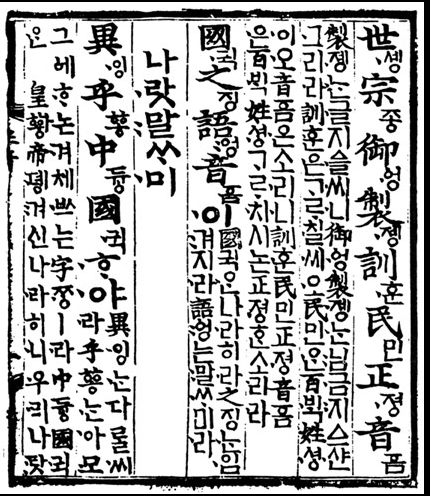 世솅宗조ᇰ御ᅌᅥᆼ製졩訓훈民민正졍音ᅙᅳᆷ
製졩ᄂᆞᆫ글지ᅀᅳᆯ씨니御ᅌᅥᆼ製졩ᄂᆞᆫ님금지ᅀᅳ샨
그리라訓훈은ᄀᆞᄅᆞ칠씨오民민ᄋᆞᆫ百ᄇᆡᆨ姓셩
이오音ᅙᅳᆷ은소리니訓훈民민正졍音ᅙᅳᆷ
은百ᄇᆡᆨ姓셩ᄀᆞᄅᆞ치시논正졍ᄒᆞᆫ소리라
國귁之징語ᅌᅥᆼ音ᅙᅳᆷ이
國귁ᄋᆞᆫ나라히라之징ᄂᆞᆫ입
겨지라語ᅌᅥᆼ는말ᄊᆞ미라
나랏말ᄊᆞ미
異잉乎ᅘᅩᆼ中듀ᇰ國귁ᄒᆞ야
異잉ᄂᆞᆫ다ᄅᆞᆯ씨
라乎ᅘᅩᆼᄂᆞᆫ아모
그ᅌᅦᄒᆞ논겨체ᄡᅳ는字ᄍᆞᆼㅣ라中듀ᇰ國귁
ᄋᆞᆫ皇ᅘᅪᆼ帝뎽겨신나라히니우리나랏